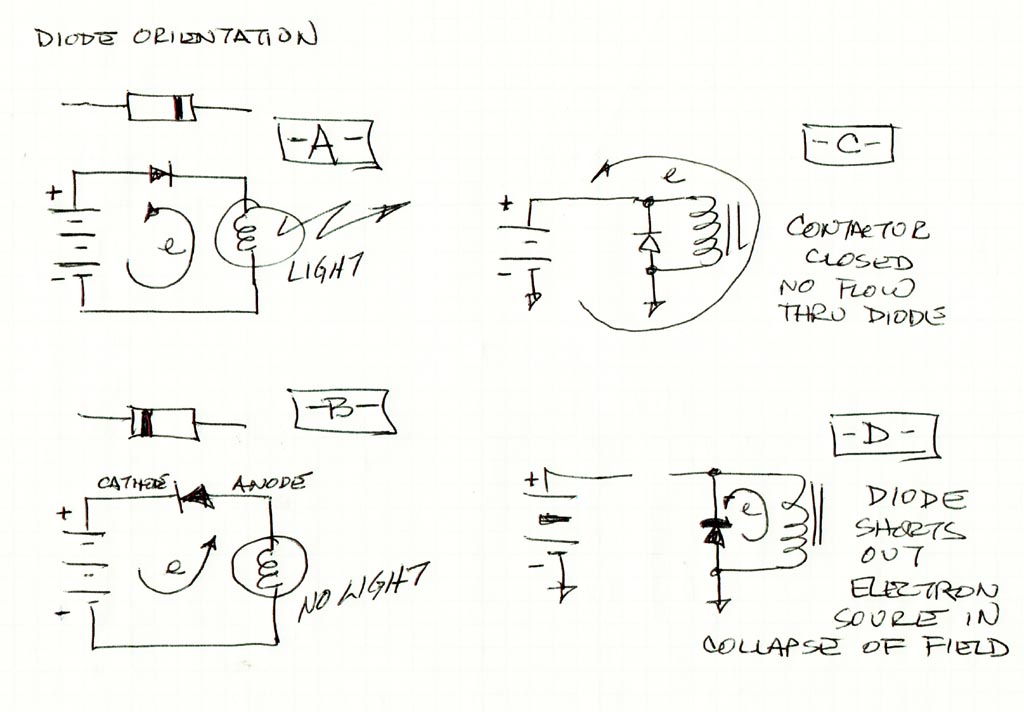 DIODE ORIENTATION
-A-
+
e
-
LIGHT
-B-
CATHODE ANODE
+
e
-
NO LIGHT
-C-
+
e
-
CONTACTOR
CLOSED
NO FLOW
THRU DIODE
-D-
+
e
-
DIODE
SHORTS
OUT
ELECTRON
SOURE IN
COLLAPSE OF FIELD